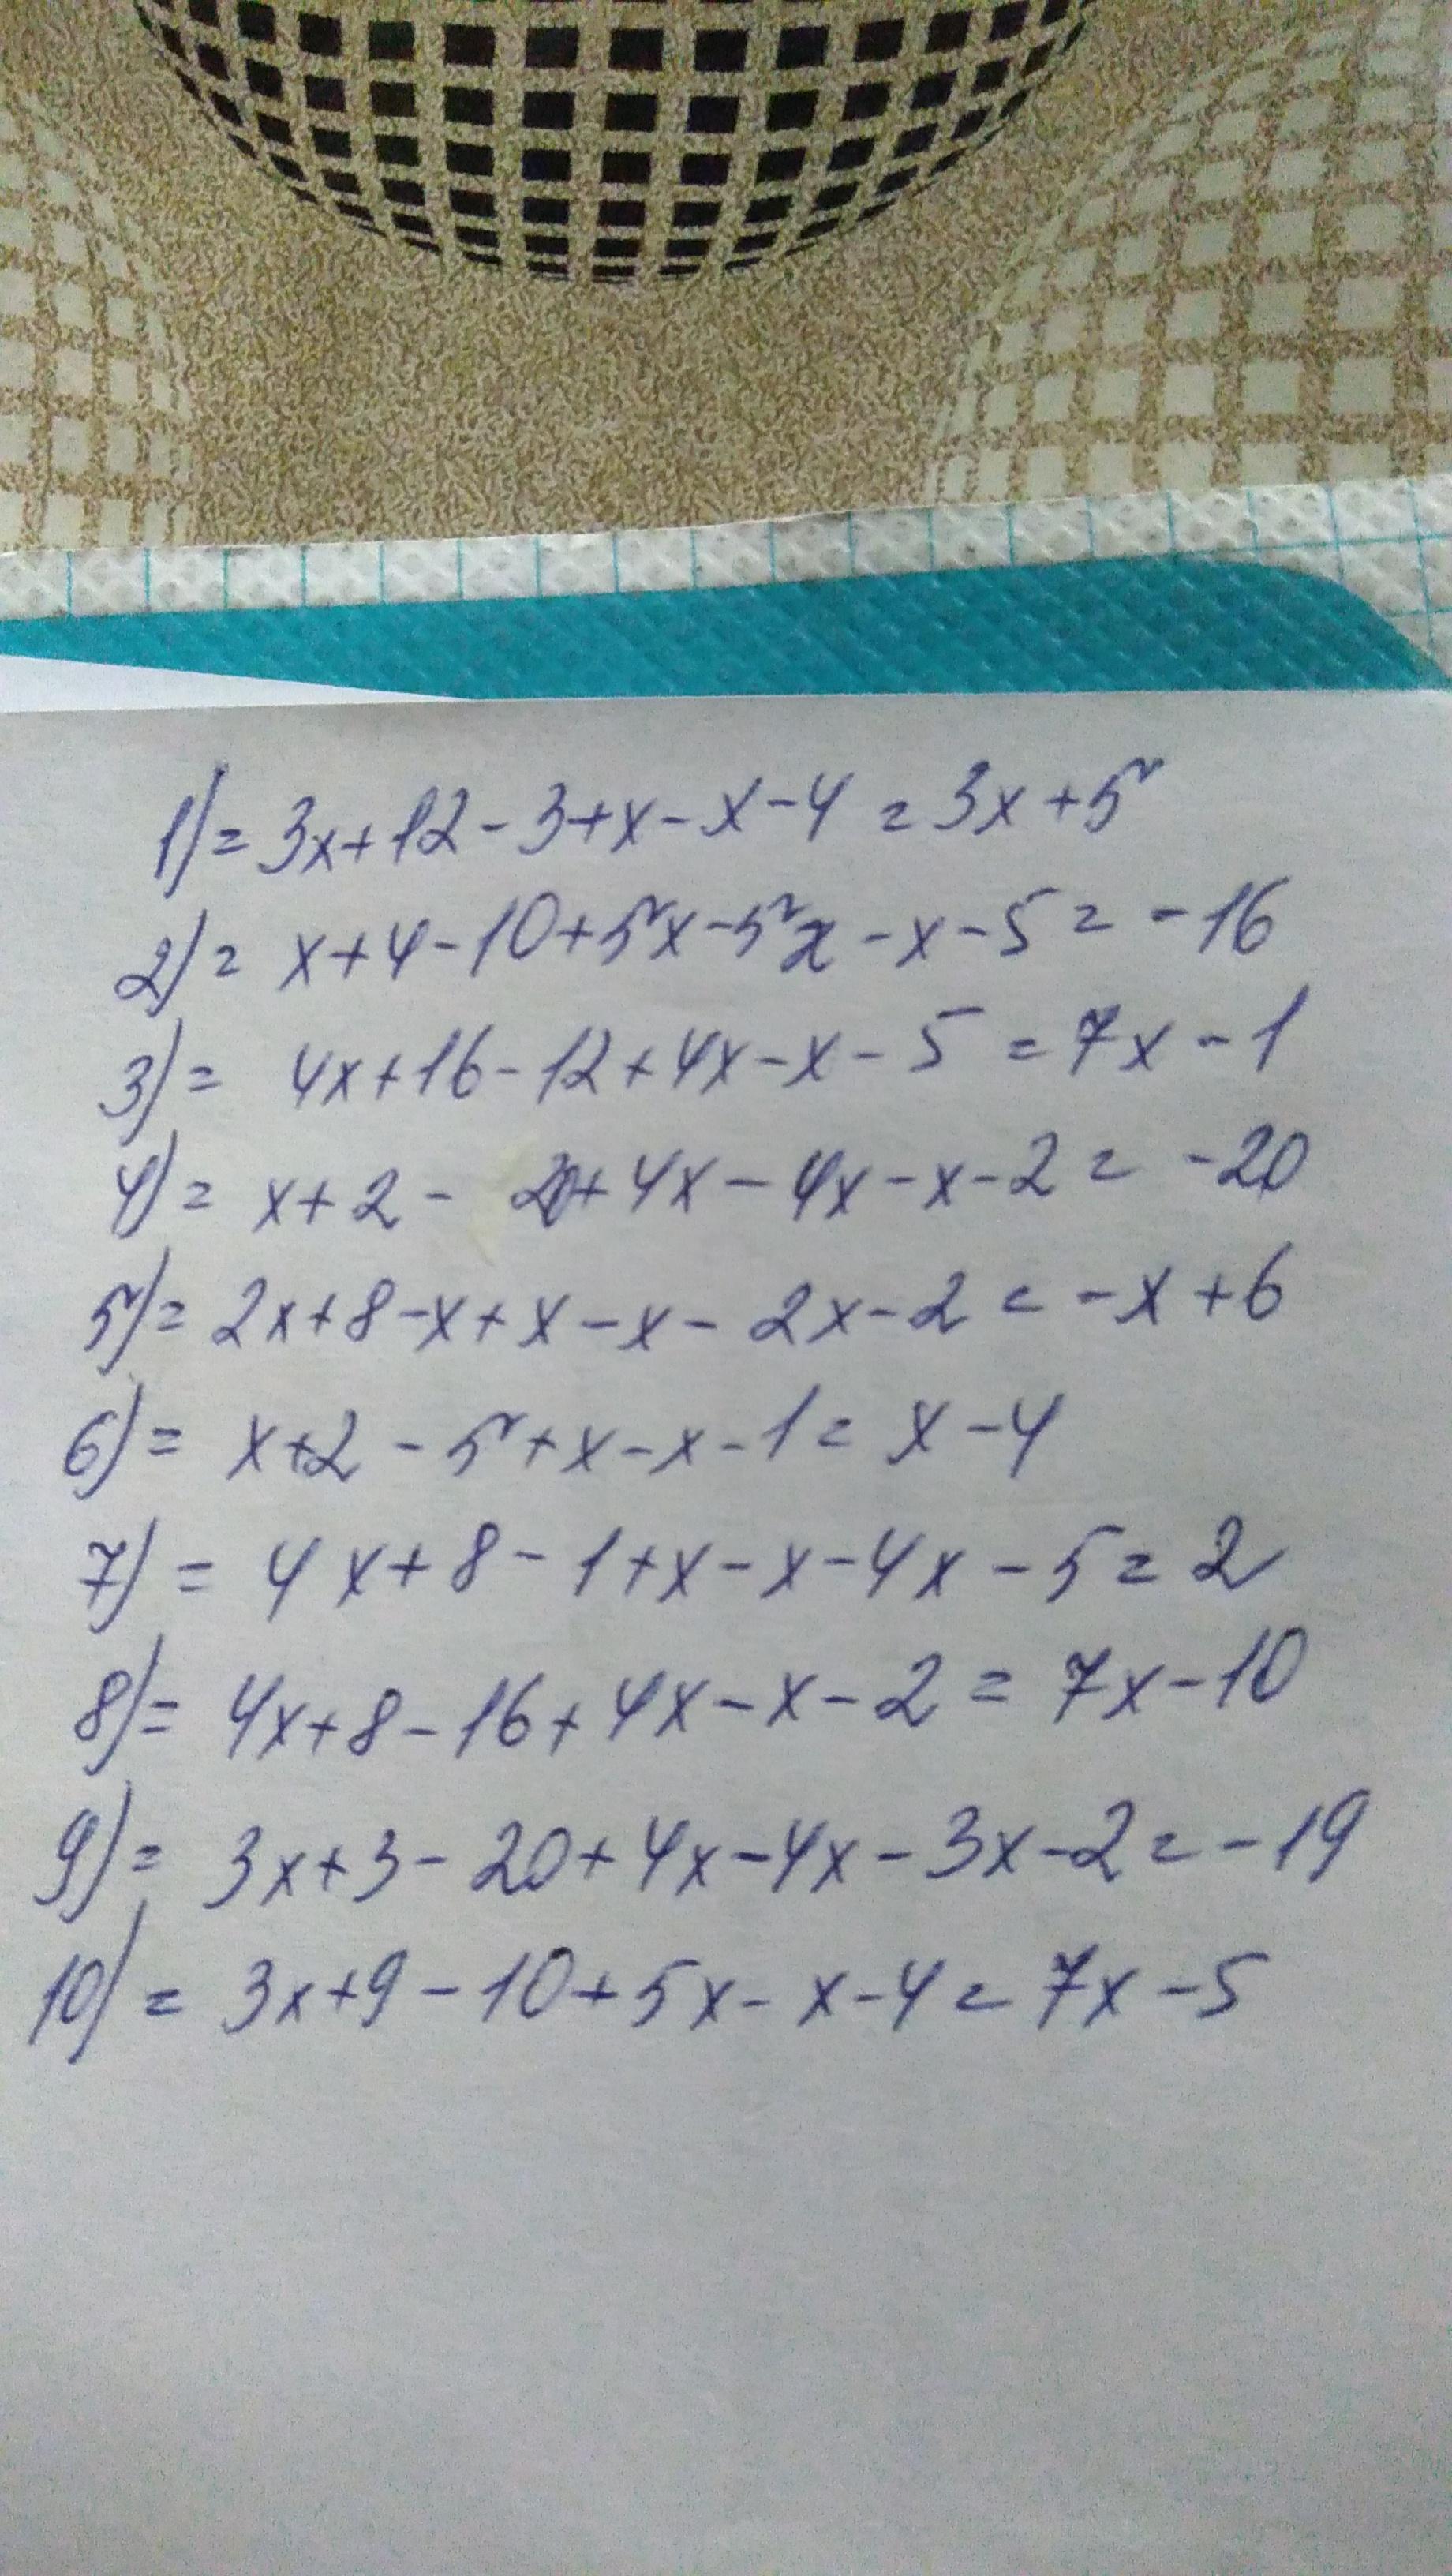 1) = 3x + 12 - 3 + x - x - 4 = 3x + 5
2) = x + 4 - 10 + 5x - 5x - x - 5 = - 16
3) = 4x + 16 - 12 + 4x - x - 5 = 7x - 1
4) = x + 2 - 20 + 4x - 4x - x - 2 = - 20
5) = 2x + 8 - x + x - x - 2x - 2 = - x + 6
6) = x + 2 - 5 + x - x - 1 = x - 4
7) = 4x + 8 - 1 + x - x - 4x - 5 = 2
8) = 4x + 8 - 16 + 4x - x - 2 = 7x - 10
9) = 3x + 3 - 20 + 4x - 4x - 3x - 2 = - 19
10) = 3x + 9 - 10 + 5x - x - 4 = 7x - 5